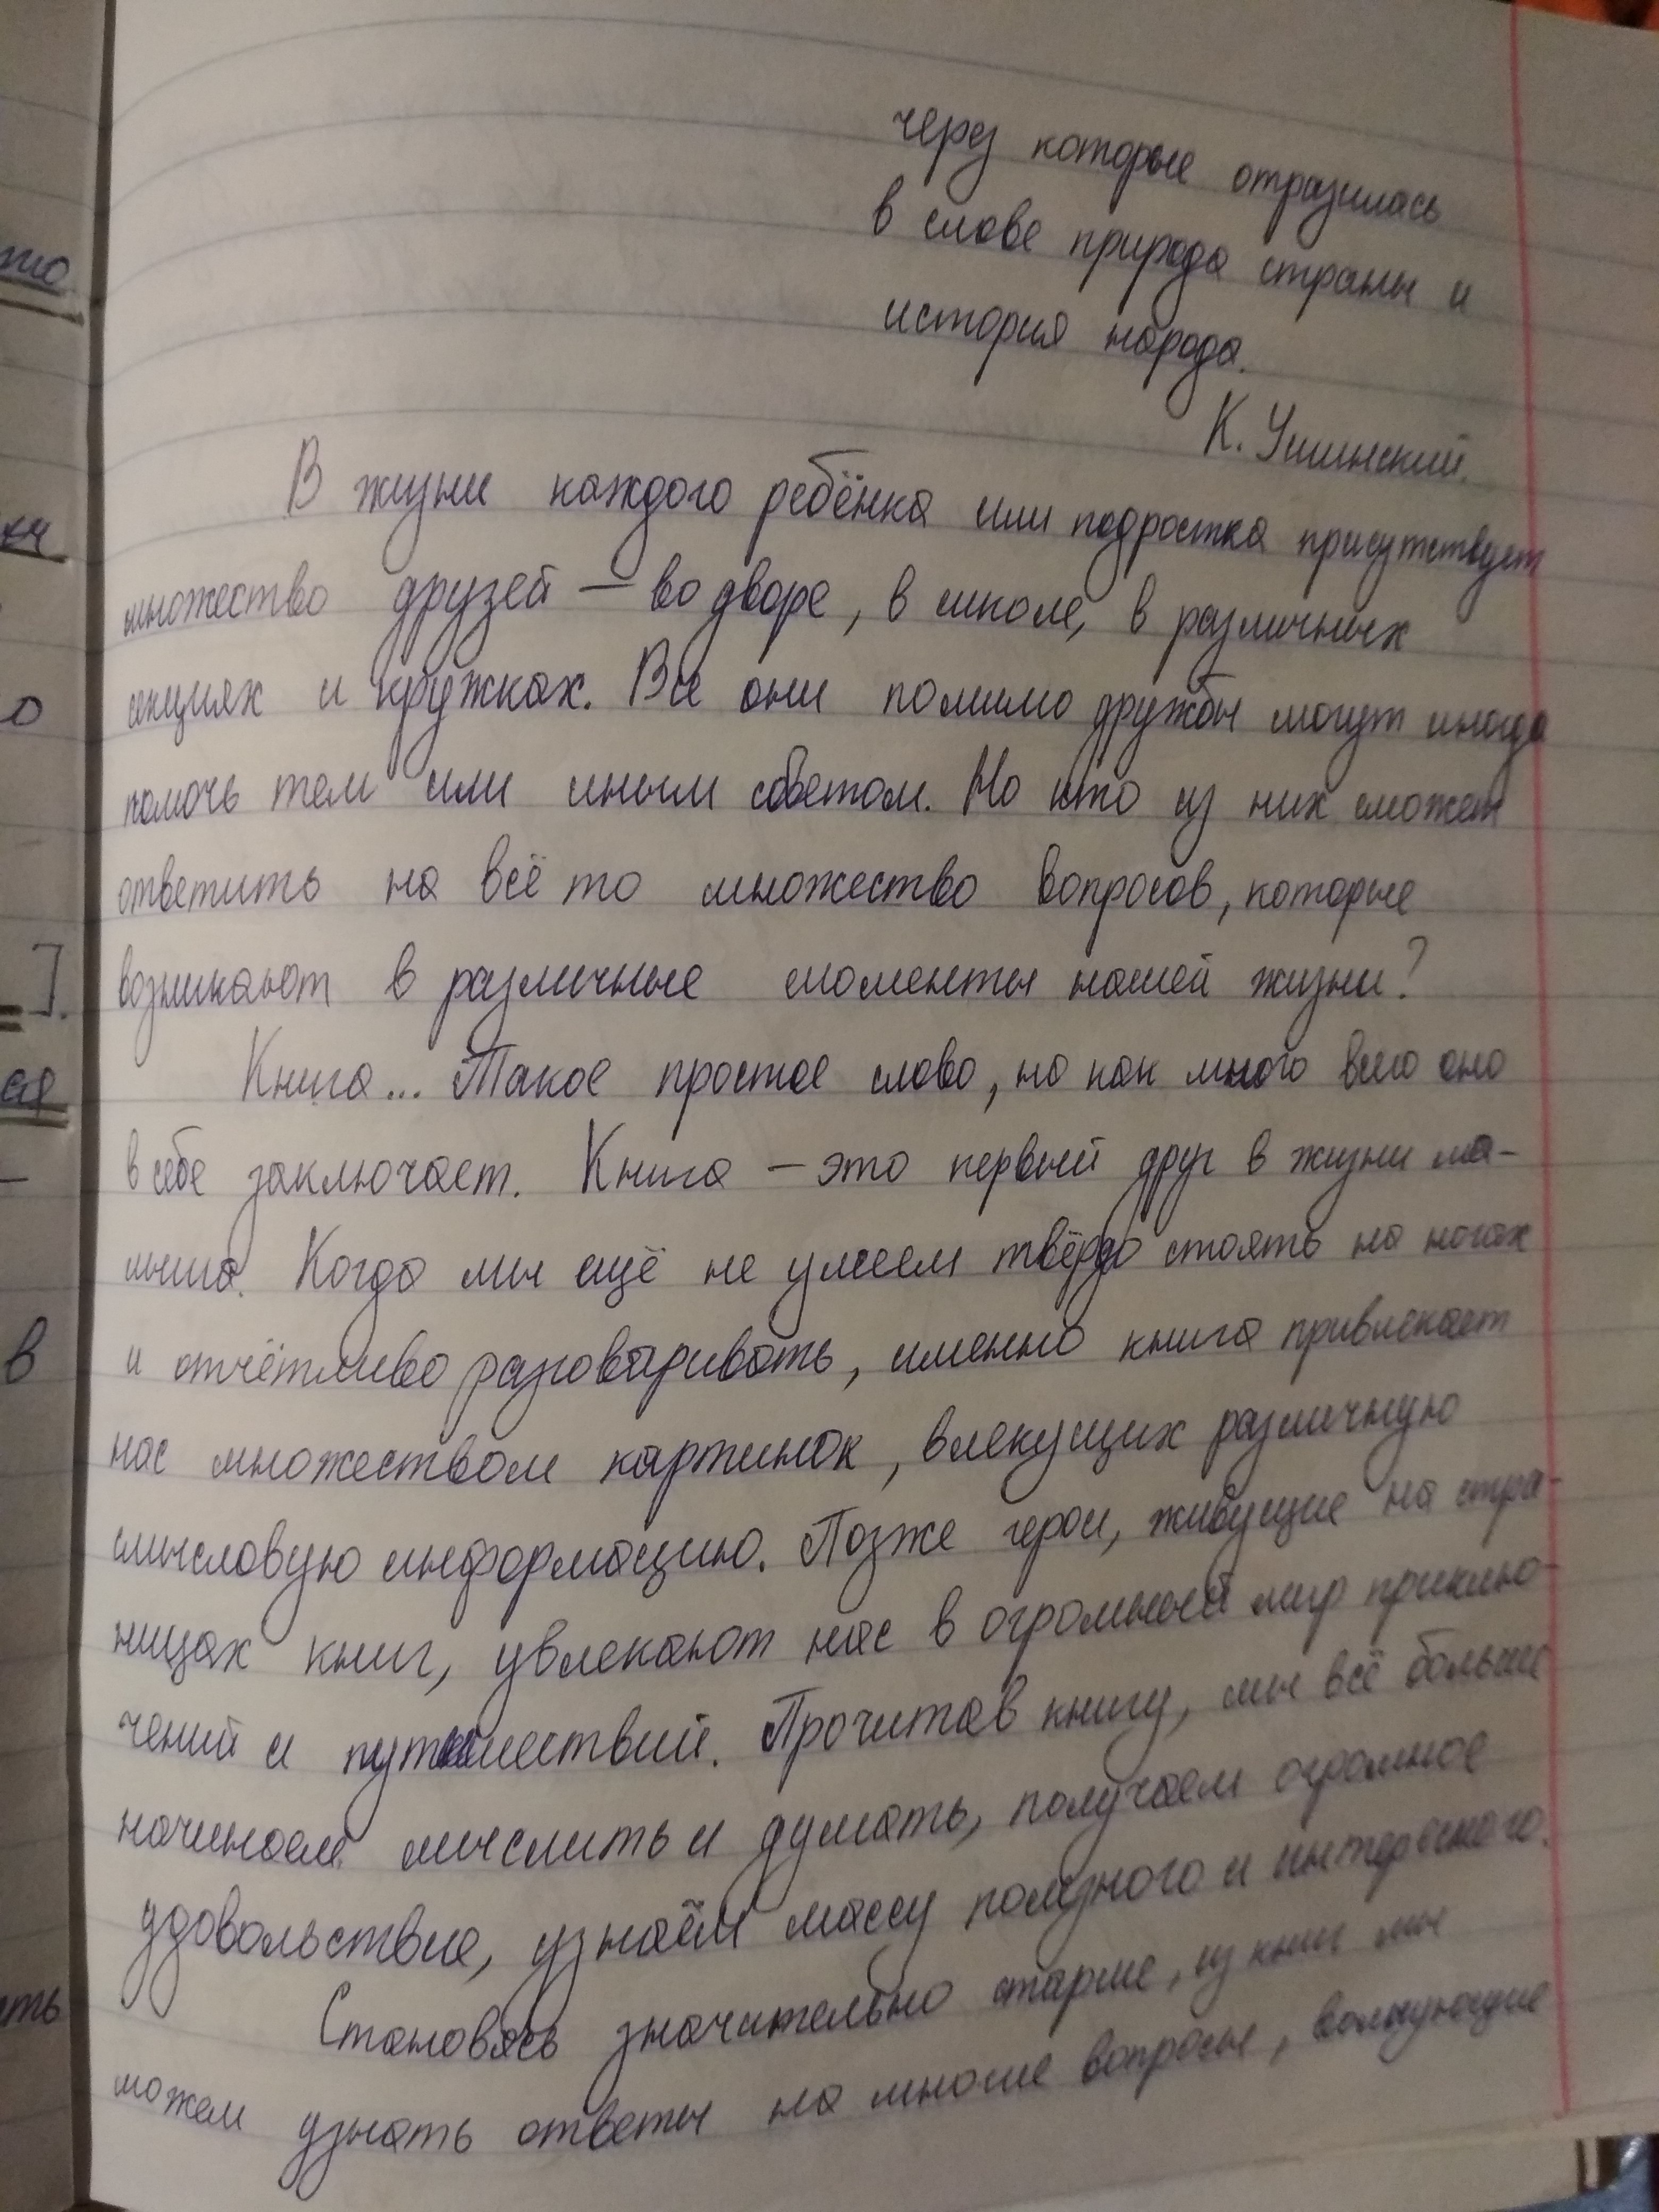 через которые отразилась
в слове природа страны и
история народа.
К. Ушинский.
В жизни каждого ребёнка или подростка присутствует
множество друзей – во дворе, в школе, в различных
секциях и кружках. Все они помимо дружбы могут иногда
помочь тем или иным советом. Но кто из них сможет
ответить на всё то множество вопросов, которые
возникают в различные моменты нашей жизни?
Книга... Такое простое слово, но как много всего оно
в себе заключает. Книга – это первый друг в жизни ма-
лыша. Когда мы ещё не умеем твёрдо стоять на ногах
и отчётливо разговаривать, именно книга привлекает
нас множеством картинок, влекущих различную
смысловую информацию. Позже герои, живущие на стра-
ницах книг, увлекают нас в огромный мир приклю-
чений и путешествий. Прочитав книгу, мы всё больше
начинаем мыслить и думать, получаем огромное
удовольствие, узнаём массу полезного и интересного.
Становясь значительно старше, из книг мы
можем узнать ответы на многие вопросы, волнующие
то
о
].
ая
–
в
ть